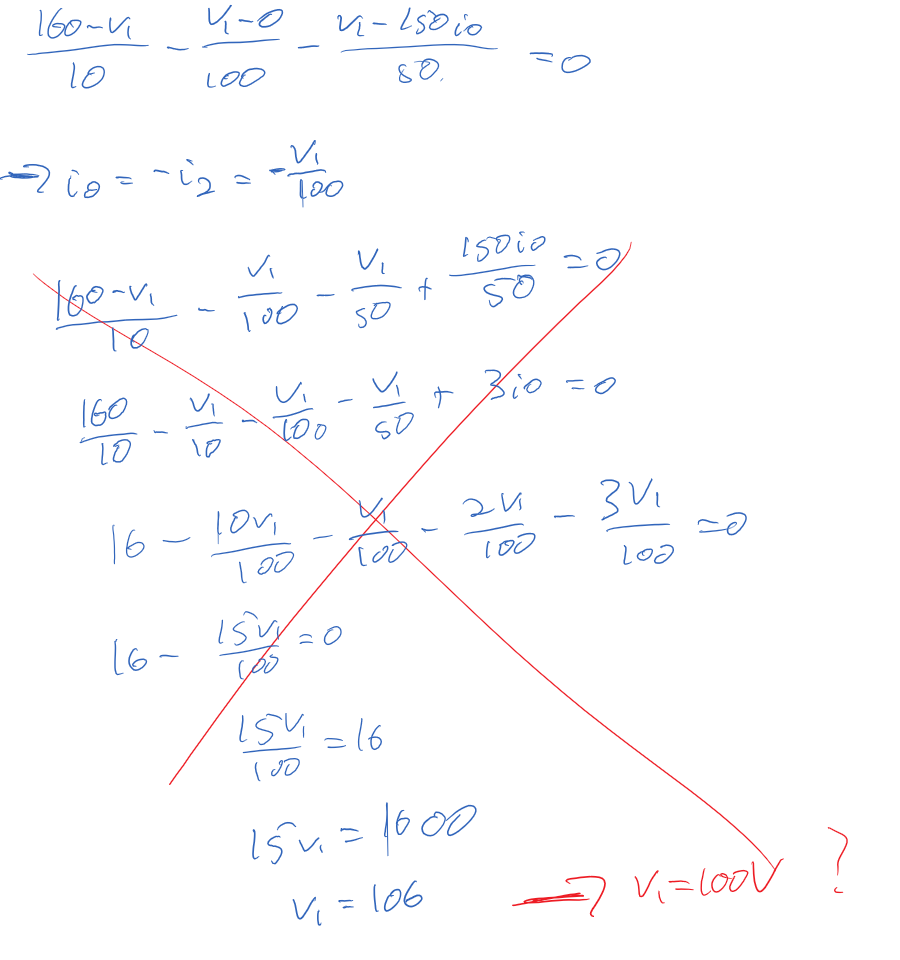 (160-V₁)/10 - (V₁-0)/100 - (V₁-150i₀)/50 = 0
→ i₀ = -i₂ = -V₁/100
(160-V₁)/10 - V₁/100 - V₁/50 + 150i₀/50 = 0
160/10 - V₁/10 - V₁/100 - V₁/50 + 3i₀ = 0
16 - 10V₁/100 - V₁/100 - 2V₁/100 - 3V₁/100 = 0
16 - 15V₁/100 = 0
15V₁/100 = 16
15V₁ = 1600
V₁ = 106 → V₁ = 100V ?